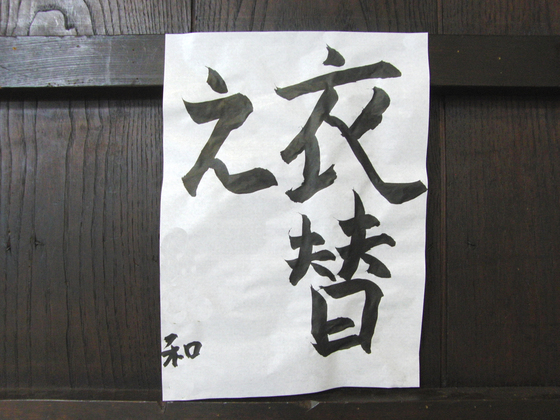 衣替
え
和